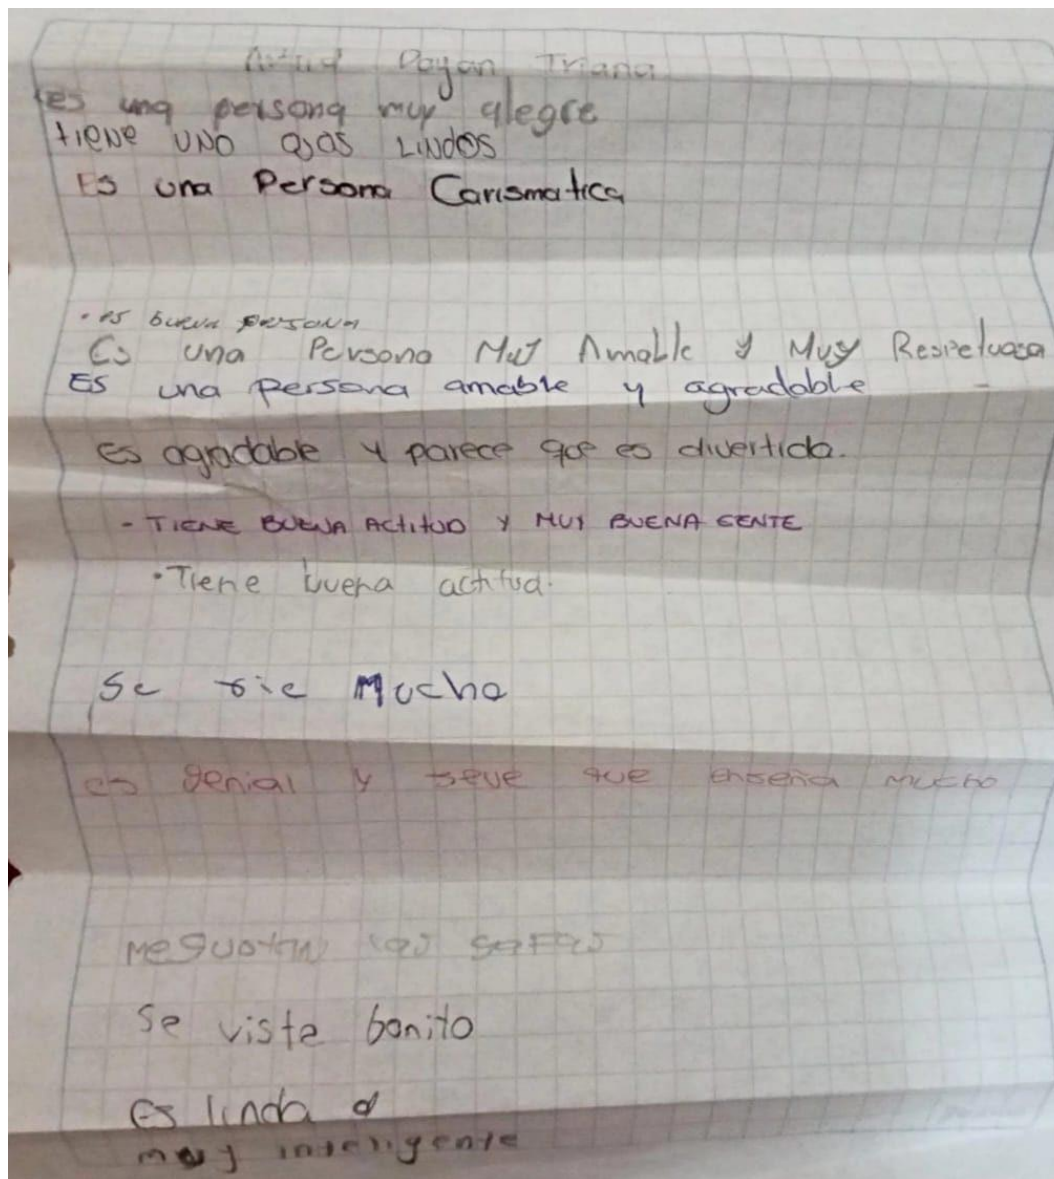 Dayan Triana
es una persona muy alegre
tiene UNO OJOS LINDOS
Es una Persona Carismatica
· es buena persona
Es una Persona Muy Amable y Muy Respetuosa
ES una persona amable y agradable
Es agradable y parece que es divertida.
- TIENE BUENA ACTITUD Y MUY BUENA GENTE
· Tiene buena actitud.
Se rie Mucho
es genial y seve que enseña mucho
me gustan las gafas
Se viste bonito
Es linda
muy inteligente